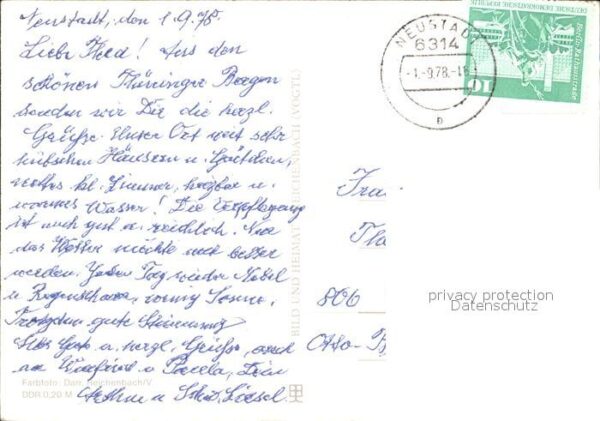 Neustadt, den 1.9.78.
Liebe Heed! Aus den
schönen Thüringer Bergen
senden wir Dir die herzl.
Grüße. Unser Ort mit sehr
hübschen Häusern u. Gärten,
nettes kl. Zimmer, heizbar u.
warmes Wasser! Die Verpflegung
ist auch gut u. reichlich. Nur
das Wetter möchte noch besser
werden. Jeden Tag wieder Nebel
u. Regenschauer, wenig Sonne.
Trotzdem gute Stimmung
Alles Gute u. herzl. Grüße, auch
an Winfried u.
u.
NEUSTADT
6314
-1.-9.78.-1
D
10
DEUTSCHE DEMOKRATISCHE REPUBLIK
Berlin, Rathausstraße
BILD UND HEIMAT REICHENBACH (VOGTL)
Frau
806
Otto-B
privacy protection
Datenschutz
Farbfoto: Darr, Reichenbach/V.
DDR 0,20 M